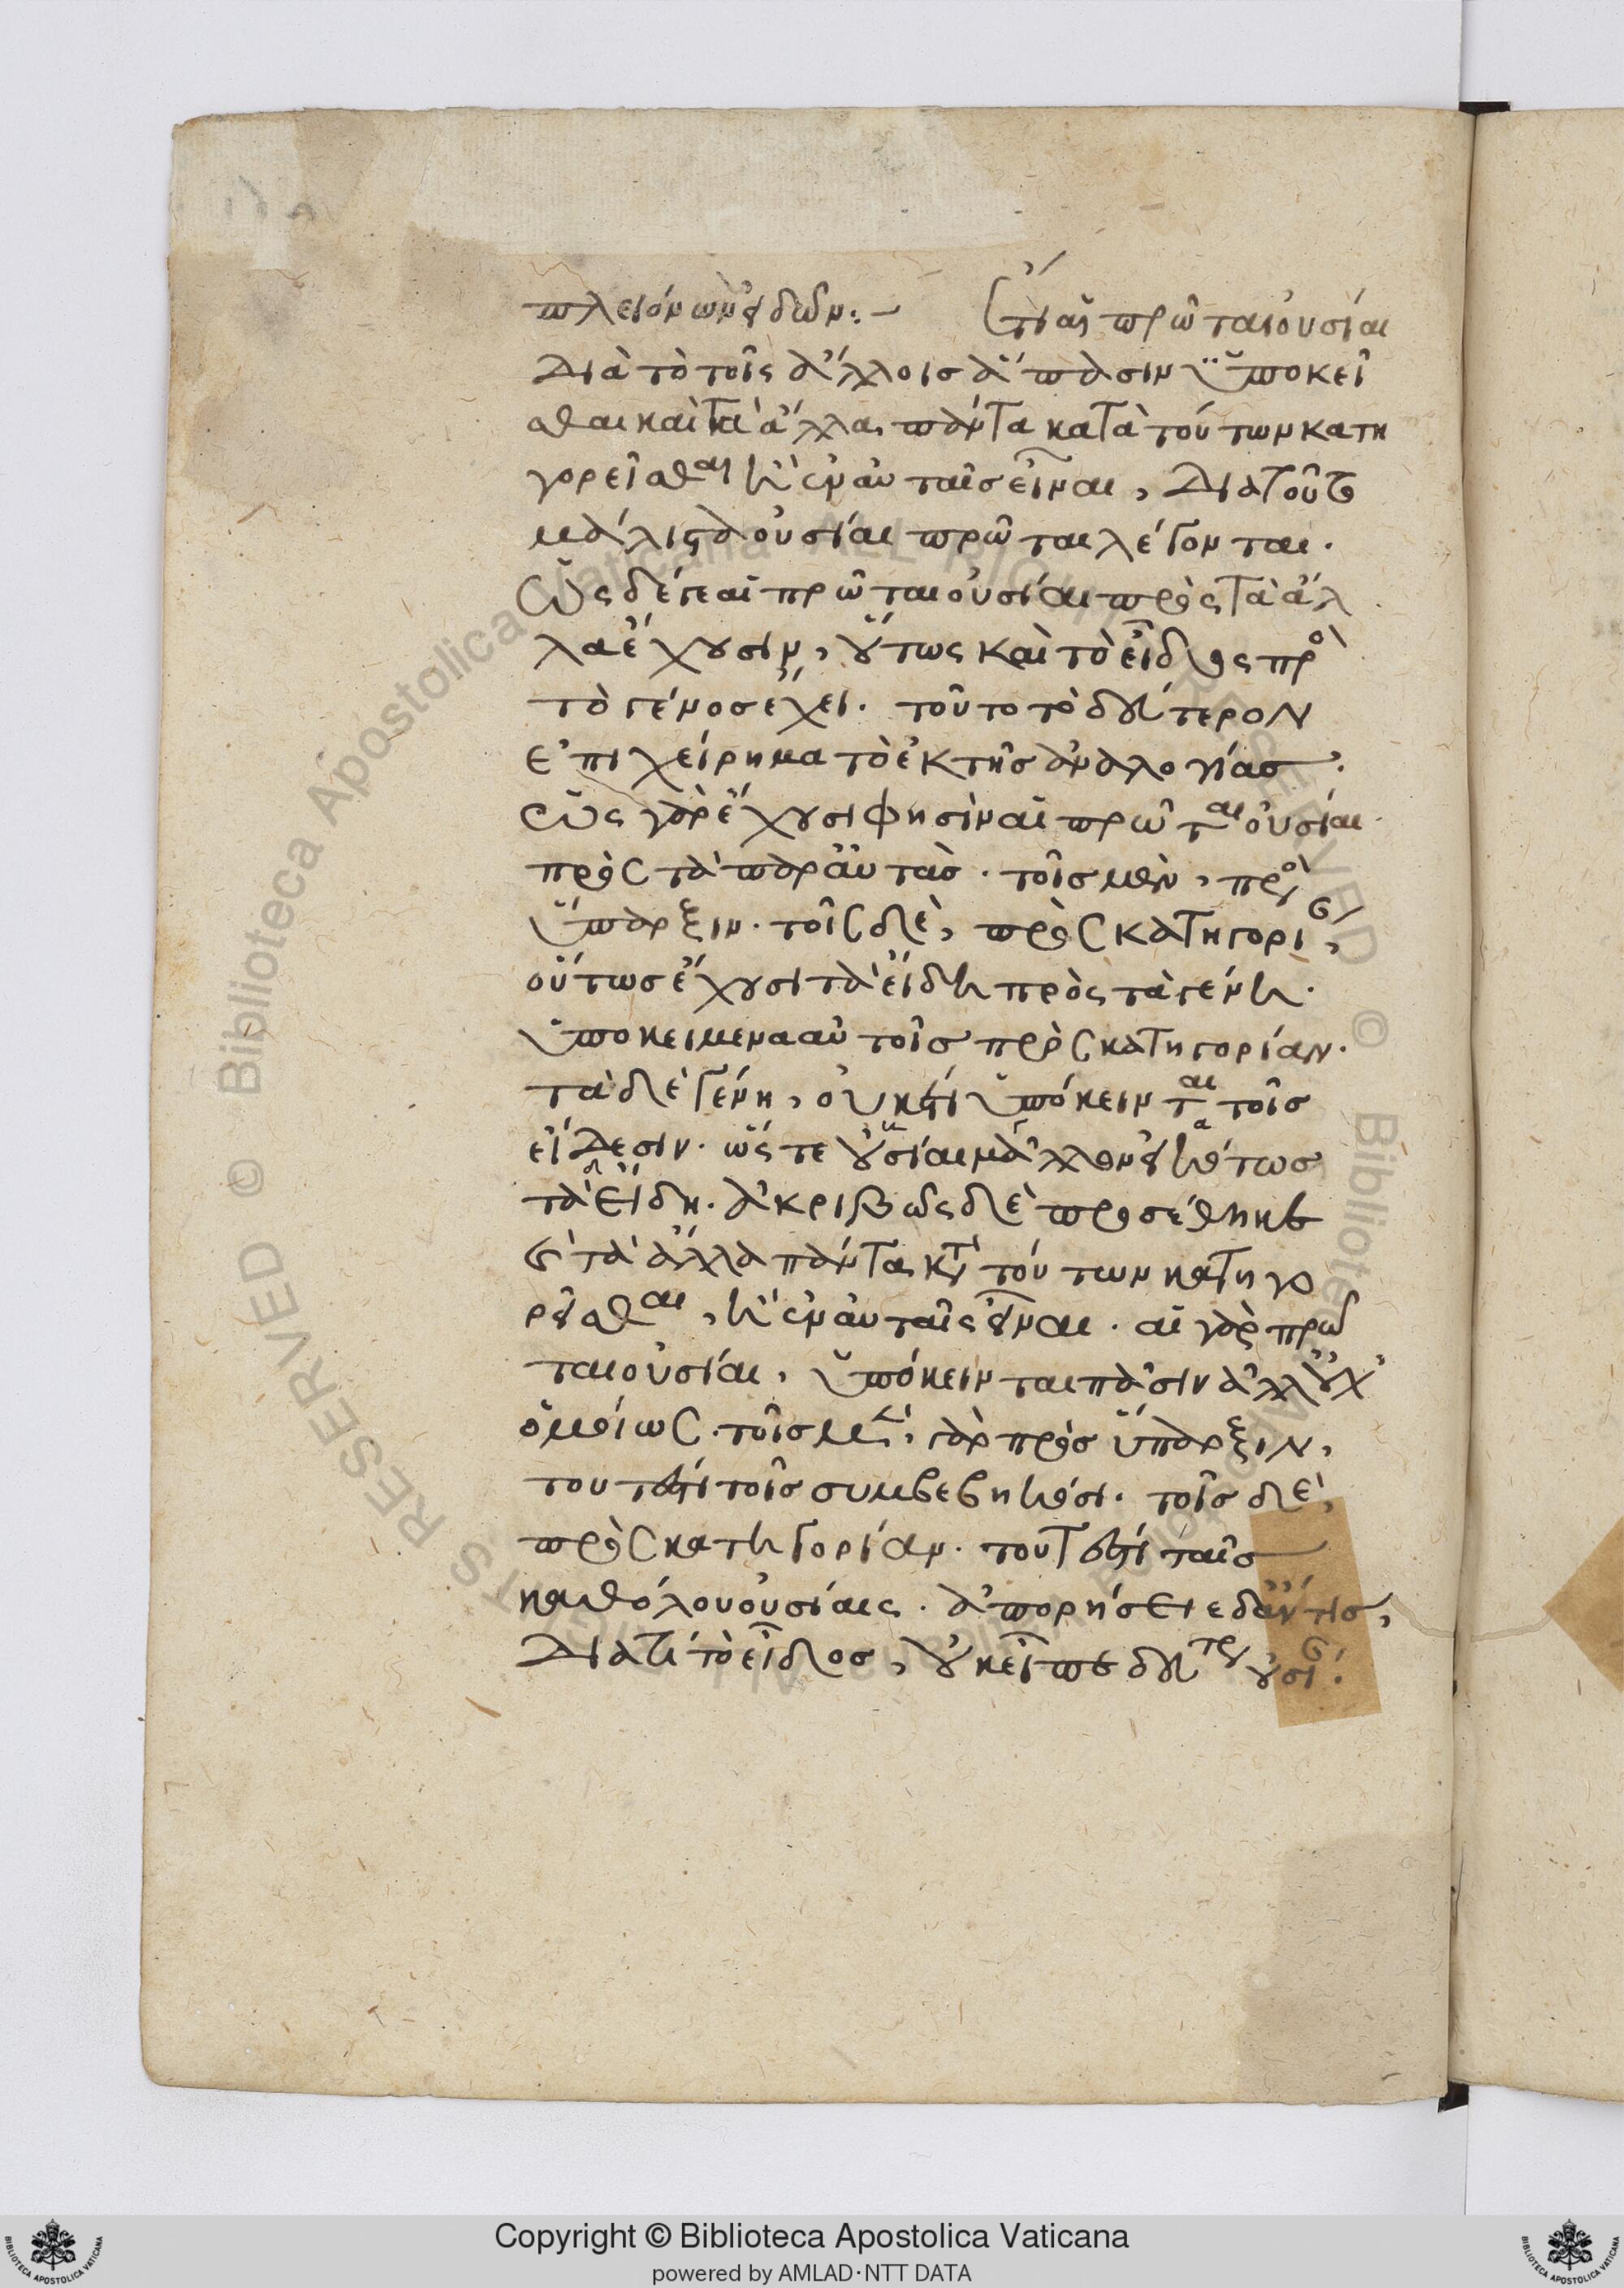 πλειόνων εἰδῶν:– Ἔτι αἱ πρῶται οὐσίαι
διὰ τὸ τοῖς ἄλλοις ἅπασιν ὑποκεῖ
σθαι καὶ τὰ ἄλλα πάντα κατὰ τούτων κατη
γορεῖσθαι ἢ ἐν αὐταῖς εἶναι, διατοῦτο
μάλιστα οὐσίαι πρῶται λέγονται.
ὡς δέ γε αἱ πρῶται οὐσίαι πρὸς τὰ ἄλ
λα ἔχουσιν, οὕτως καὶ τὸ εἶδος πρὸς
τὸ γένος ἔχει. τοῦτο τὸ δεύτερον
ἐπιχείρημα τὸ ἐκ τῆς ἀναλογίας.
ὡς γὰρ ἔχουσι φησὶν αἱ πρῶται οὐσίαι
πρὸς τὰ παρ' αὐτάς. τοῖς μὲν, πρὸς
ὕπαρξιν. τοῖς δὲ, πρὸς κατηγορίαν,
οὕτως ἔχουσι τὰ εἴδη πρὸς τὰ γένη.
ὑποκείμενα αὐτοῖς πρὸς κατηγορίαν.
τὰ δὲ γένη, οὐκέτι ὑπόκεινται τοῖς
εἴδεσιν. ὥστε οὐσίαι μᾶλλον εἰκότως
τὰ εἴδη. ἀκριβῶς δὲ προσέθηκε
τὸ τὰ ἄλλα πάντα κατὰ τούτων κατηγο
ρεῖσθαι, ἢ ἐν αὐταῖς εἶναι. αἱ γὰρ πρῶ
ται οὐσίαι, ὑπόκεινται πᾶσιν ἀλλ' οὐχ
ὁμοίως. τοῖς μὲν, γὰρ πρὸς ὕπαρξιν,
τουτέστι τοῖς συμβεβηκόσι. τοῖς δὲ,
πρὸς κατηγορίαν. τουτέστι ταῖς
καθόλου οὐσίαις. ἀπορήσειε δ' ἄν τις,
διατί τὸ εἶδος, οὐκ εἶπε δευτέραν οὐσίαν.
Copyright © Biblioteca Apostolica Vaticana
powered by AMLAD·NTT DATA